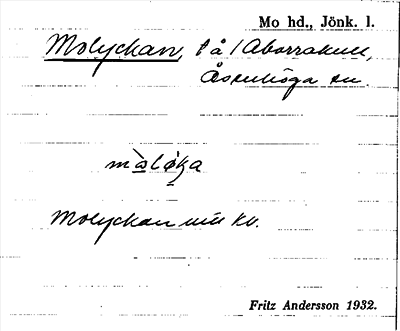 Mo hd., Jönk. l.
Molyckan, på 1 Aborrakull,
Åsenhöga sn.
Molyckan kv.
Fritz Andersson 1932.